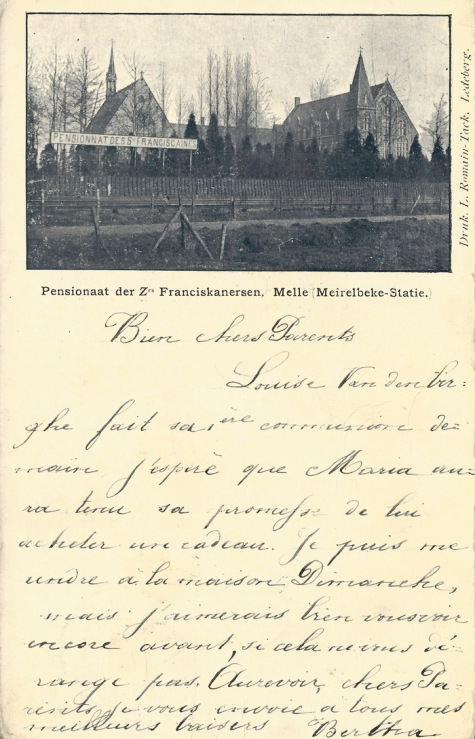 PENSIONNAT DES S FRANCISCAINES
Druk. L. Romain-Tack. Ledeberg.
Pensionaat der Zrs Franciskanersen, Melle (Meirelbeke-Statie.)
Bien chers Parents
Louise Van den Ber:
ghe fait sa 1ère communion de-
maine j'espire que Maria au-
ra tenu sa promesse de lui
acheter un cadeau. Je puis me
rendre à la maison Dimanche,
mais j'aimerais bien vous voir
encore avant, si cela ne vous dé-
range pas. Aurevoir, chers Pa-
rents, je vous envoie à tous mes
meilleurs baisers Bertha